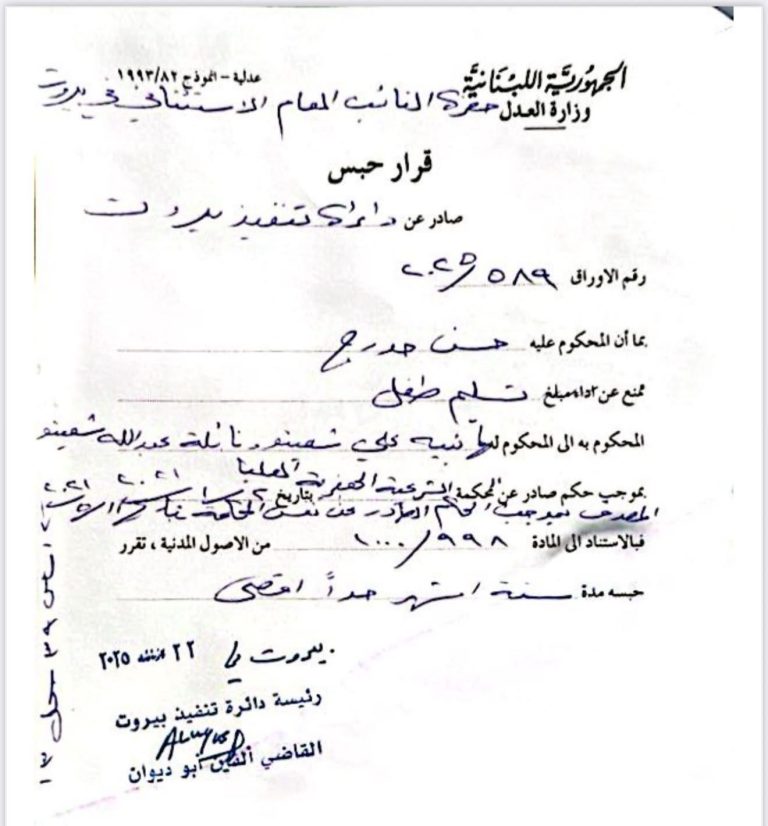 الجمهوريّة اللبنانيّة
وزارة العدل
عدلية - انموذج ١٩٩٣/٨٢
حضرة النائب العام الاستئنافي في بيروت
قرار حبس
صادر عن دائرة تنفيذ بيروت
رقم الاوراق ٢٠٢٥/٥٨٩
بما أن المحكوم عليه حسن حدرج
ممتنع عن اداء مبلغ تسليم طفل
المحكوم به الى المحكوم لهما نبيه علي شعيتو ونائلة عبدالله شعيتو
بموجب حكم صادر عن المحكمة الشرعية الجعفرية العليا بتاريخ
المصدق بموجب الحكم الصادر عن نفس المحكمة
فبالاستناد الى المادة ٩٩٨/١٠٠٠ من الاصول المدنية ، تقرر
حبسه مدة ستة اشهر حداً اقصى
بيروت في ٢٢ ٢٠٢٥
رئيسة دائرة تنفيذ بيروت
القاضي ألفين أبو ديوان
اساس ٣٩ سجل